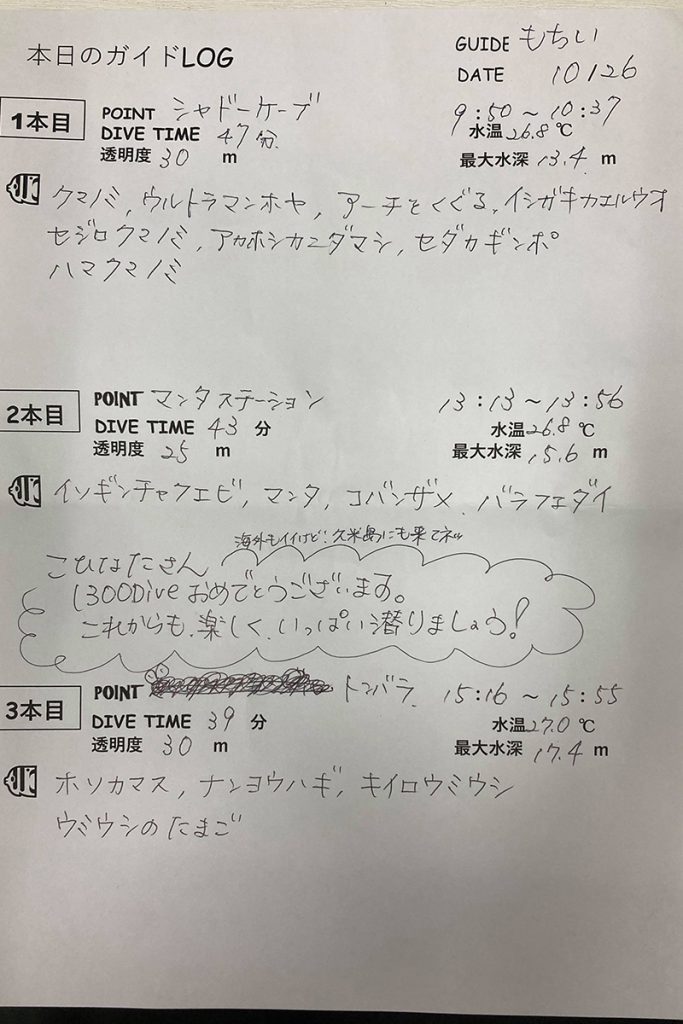 本日のガイドLOG
GUIDE もちい
DATE 10/26
1本目
POINT シャドーケーブ
9:50 ～ 10:37
DIVE TIME 47 分
水温 26.8 ℃
透明度 30 m
最大水深 13.4 m
クマノミ, ウルトラマンホヤ, アーチをくぐる, イシガキカエルウオ
セジロクマノミ, アカホシカニダマシ, セダカギンポ
ハマクマノミ
2本目
POINT マンタステーション
13:13 ～ 13:56
DIVE TIME 43 分
水温 26.8 ℃
透明度 25 m
最大水深 15.6 m
イソギンチャクエビ, マンタ, コバンザメ, バラフエダイ
海外もイイけど! 久米島にも来てネ
こひなたさん
1300Dive おめでとうございます。
これからも、楽しく、いっぱい潜りましょう!
3本目
POINT トンバラ
15:16 ～ 15:55
DIVE TIME 39 分
水温 27.0 ℃
透明度 30 m
最大水深 17.4 m
ホソカマス, ナンヨウハギ, キイロウミウシ
ウミウシのたまご